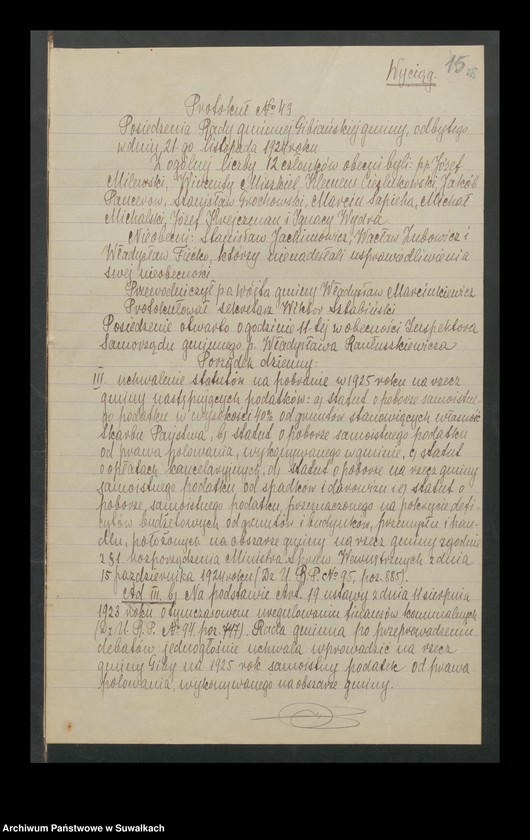 Wyciąg. 15
Protokuł No 43
Posiedzenia Rady gminnej Gibiańskiej gminy, odbytego
w dniu 21-go listopada 1924 roku
Z ogólnej liczby 12 członków obecni byli: pp. Józef
Milewski, Wincenty Miszkiel, Klemens Cieślukowski, Jakób
Pancerow, Stanisław Grochowski, Marcin Sapieha, Michał
Michalski, Józef Krejczman i Ignacy Wydra
Nieobecni: Stanisław Jachimowicz, Wacław Zubowicz i
Władysław Fiećko, którzy nienadesłali usprawiedliwienia
swej nieobecności.
Przewodniczył p.o. wójta gminy Władysław Marcinkiewicz
Protokułował sekretarz Wiktor Sztabiński
Posiedzenie otwarto o godzinie 11-tej w obecności Inspektora
Samorządu gminnego p. Władysława Ranłuszkiewicza
Porządek dzienny:
III. uchwalenie statutów na pobranie w 1925 roku na rzecz
gminy następujących podatków: a) statut o poborze samoistne-
go podatku w wysokości 40% od gruntów stanowiących własność
Skarbu Państwa, b) statut o poborze samoistnego podatku
od prawa polowania, wykonywanego w gminie, c) statut
o opłatach kancelaryjnych, d) statut o poborze na rzecz gminy
samoistnego podatku od spadków i darowizn i e) statut o
poborze samoistnego podatku, przeznaczonego na pokrycie defi-
cytów budżetowych od gruntów i budynków, przemysłu i han-
dlu, położonych na obszarze gminy na rzecz gminy zgodnie
z § 1 rozporządzenia Ministra Spraw Wewnętrznych z dnia
15 października 1924 roku (Dz. U. R. P. No 95, poz. 885).
Ad III. b) Na podstawie Art. 19 ustawy z dnia 11 sierpnia
1923 roku o tymczasowem uregulowaniu finansów komunalnych
(Dz. U. R. P. No 94 poz. 747). Rada gminna po przeprowadzeniu
debatów, jednogłośnie uchwala wprowadzić na rzecz
gminy Giby na 1925 rok samoistny podatek od prawa
polowania, wykonywanego na obszarze gminy.
Archiwum Państwowe w Suwałkach